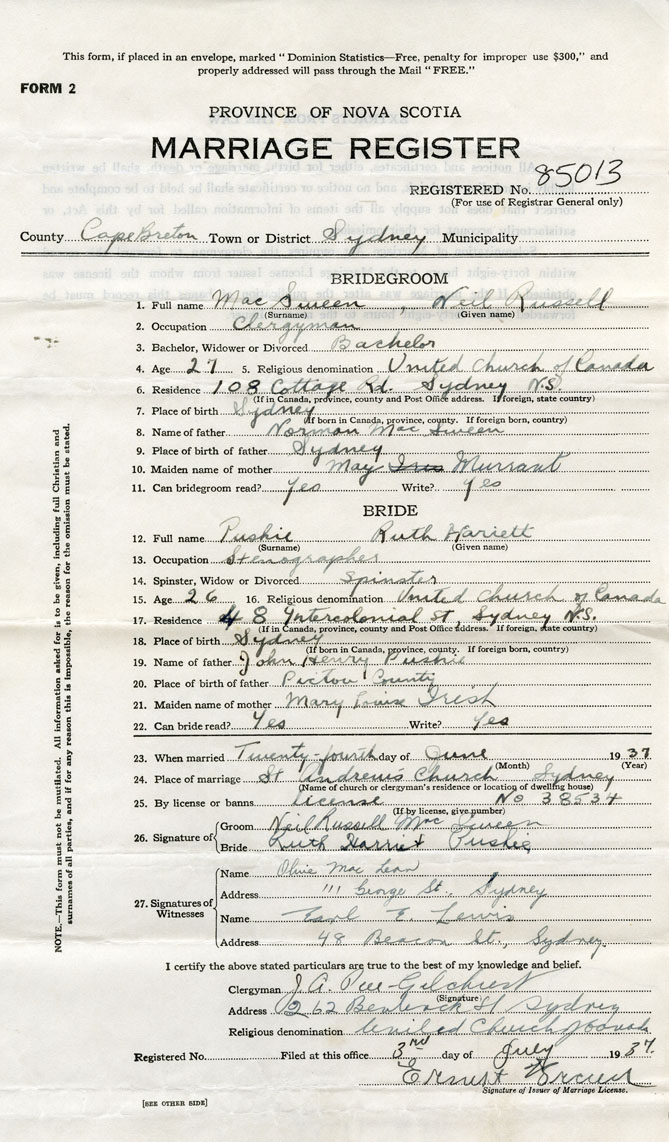 This form, if placed in an envelope, marked "Dominion Statistics—Free, penalty for improper use $300," and
properly addressed will pass through the Mail "FREE."
FORM 2
PROVINCE OF NOVA SCOTIA
MARRIAGE REGISTER
REGISTERED No. 85013
(For use of Registrar General only)
County Cape Breton Town or District Sydney Municipality
BRIDEGROOM
1. Full name Mac Sween, Neil Russell
(Surname) (Given name)
2. Occupation Clergyman
3. Bachelor, Widower or Divorced Bachelor
4. Age 27 5. Religious denomination United Church of Canada
6. Residence 108 Cottage Rd. Sydney N.S.
(If in Canada, province, county and Post Office address. If foreign, state country)
7. Place of birth Sydney
(If born in Canada, province, county. If foreign born, country)
8. Name of father Norman Mac Sween
9. Place of birth of father Sydney
10. Maiden name of mother May Murrant
11. Can bridegroom read? Yes Write? Yes
BRIDE
12. Full name Pushie Ruth Hariett
(Surname) (Given name)
13. Occupation Stenographer
14. Spinster, Widow or Divorced Spinster
15. Age 26 16. Religious denomination United Church of Canada
17. Residence 48 Intercolonial St, Sydney N.S.
(If in Canada, province, county and Post Office address. If foreign, state country)
18. Place of birth Sydney
(If born in Canada, province, county. If foreign born, country)
19. Name of father John Henry Pushie
20. Place of birth of father Pictou County
21. Maiden name of mother Mary Louise
22. Can bride read? Yes Write? Yes
23. When married Twenty-fourth day of June 1937
(Month) (Year)
24. Place of marriage St Andrews Church Sydney
(Name of church or clergyman's residence or location of dwelling house)
25. By license or banns license No 38534
(If by license, give number)
26. Signature of Groom Neil Russell Mac Sween
Bride Ruth Harriet Pushie
27. Signatures of Witnesses
Name Olive Mac Lean
Address 111 George St., Sydney
Name Earl E. Lewis
Address 48 Beacon St., Sydney.
I certify the above stated particulars are true to the best of my knowledge and belief.
Clergyman J. A. Gilchrist
(Signature)
Address 262 Bentinck St Sydney
Religious denomination United Church of Canada
Registered No. Filed at this office 3rd day of July 1937.
Ernest
Signature of Issuer of Marriage License.
[SEE OTHER SIDE]
NOTE.—This form must not be mutilated. All information asked for is to be given, including full Christian and
surnames of all parties, and if for any reason this is impossible, the reason for the omission must be stated.